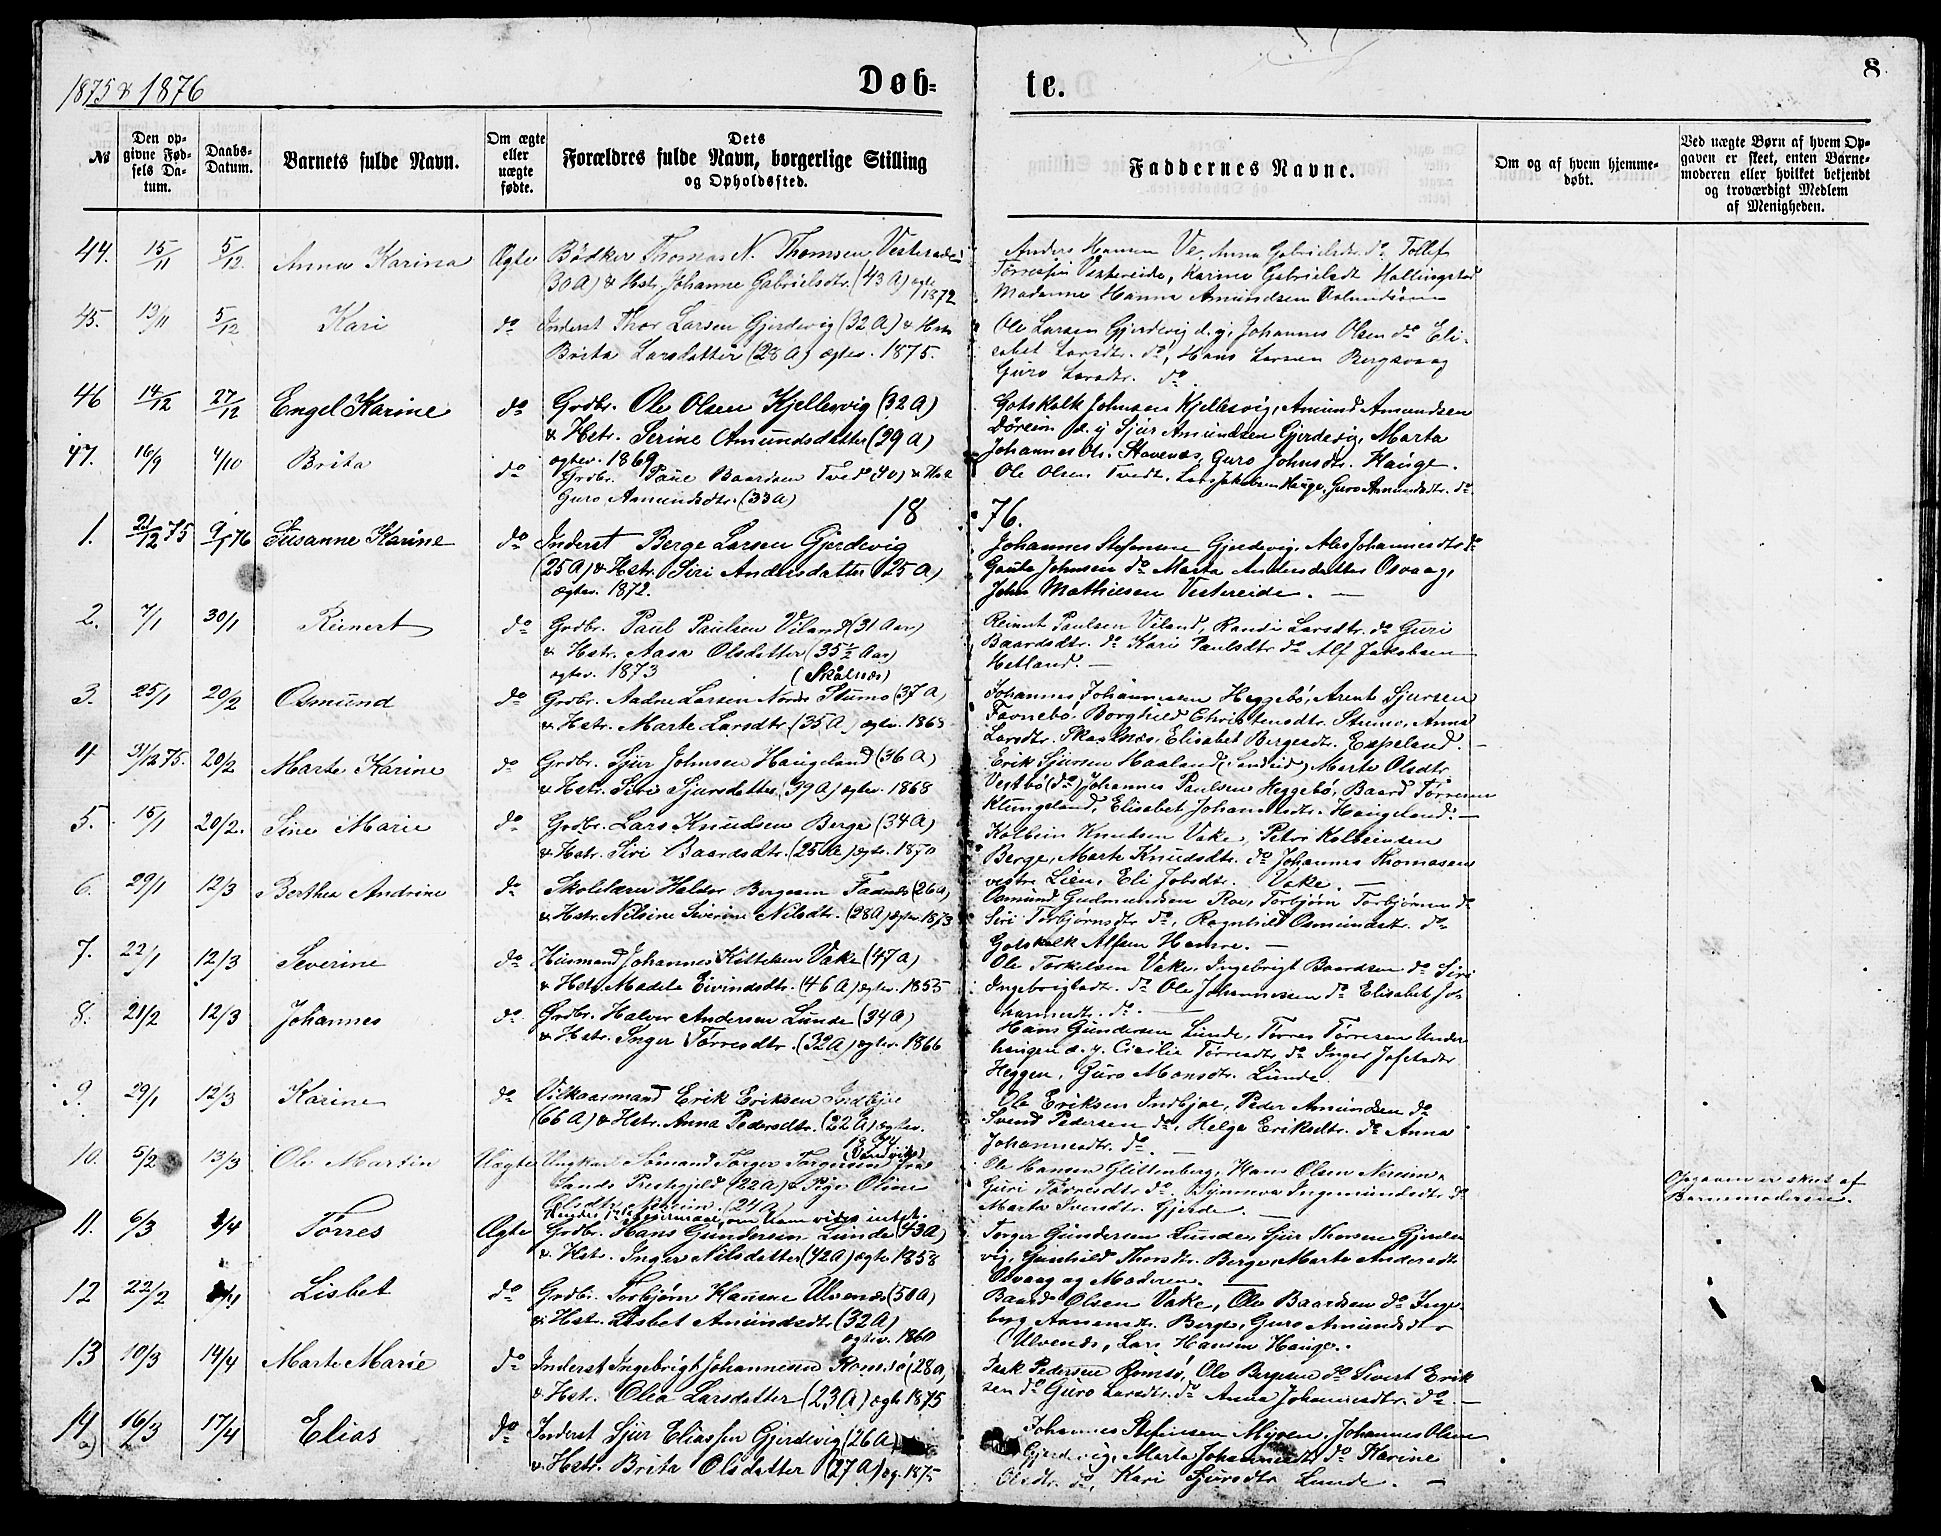 1875 & 1876
Døb-
te.
8
№
Den op-
givne Fød-
sels Da-
tum.
Daabs-
Datum.
Barnets fulde Navn.
Om ægte
eller
uægte
fødte.
Dets
Forældres fulde Navn, borgerlige Stilling
og Opholdssted.
Faddernes Navne.
Om og af hvem hjemme-
døbt.
Ved uægte Børn af hvem Op-
gaven er skeet, enten Barne-
moderen eller hvilket bekjendt
og troværdigt Medlem
af Menigheden.
44. 15/11 5/12. Anna Karina Ægte Bødker Thomas N. Thomsen
(30 A) & Hstr. Johanne Gabrielsdtr. (43 A) ægtv. 1872
Anders Hansen Ve, Anna Gabrielsdtr. do Tollef
Tørresen Vestereide, Karina Gabrielsdt Hallingstad
Madamme Hanna Amundsen
45. 13/11 5/12 Kari do Inderst Thor Larsen Gjerdevig (32 A) & Hstr
Brita Larsdatter (28 A) ægtev. 1875.
Ole Larsen Gjerdevig d. y, Johannes Olsen do Eli-
sabet Larsdtr. do, Hans Larsen Bergsvaag
Guro Larsdtr. do
46 14/12 27/12 Engel Karine do Grdbr. Ole Olsen Kjellesvig (32 A)
& Hstr. Serine Amundsdatter (29 A)
ægtev. 1869
Gotskalk Johnsen Kjellesvig, Amund Amundsen
Døreim d. y Sjur Amundsen Gjerdevig, Marta
Johannes Ols. Stavenæs, Guro Johnsdtr. Hauge.
47. 16/9 4/10 Brita do Grdbr. Paul Baardsen Tved (40) & Hstr
Guro Amundsdtr. (33 A)
Ole Olsen Tvedt, Lars Jakobsen Hauge, Guro Amundsdtr. do
18 76.
1. 21/12 75 9/1 76 Susanne Karine do Inderst Berge Larsen Gjerdevig
(25 A) & Hstr. Siri Andersdatter (25 A)
ægtev. 1872.
Johannes Stefensen Gjerdevig, Ales Johannesdtr do
Gaute Johnsen do Marta Andersdatter Osvaag,
John Mathiesen Vestereide. —
2. 7/1 30/1 Reinert do Grdbr. Paul Paulsen Viland (31 Aar)
& Hstr. Aasa Olsdatter (35 ½ Aar)
ægtev. 1873
Reinert Paulsen Viland, Randi Larsdtr. do Guri
Baardsdtr. do Kari Paulsdtr do Alf Jakobsen
Hetland. —
3. 25/1 20/2 Osmund do Grdbr. Aadne Larsen Nordre Stumo (37 A)
(Skålnæs)
& Hstr. Marte Larsdtr. (35 A) ægtev. 1863
Johannes Johannesen Heggebø, Arent Sjursen
Favnebø, Borghild Christensdtr. Stumo, Anna
Larsdtr. Skaalnæs, Elisabet Bergesdtr. Espeland. —
4 31/12 75. 20/2 Marte Karine do Grdbr. Sjur Johnsen Haugeland (36 A)
& Hstr. Siri Sjursdatter (39 A) ægtev. 1868
Erik Sjursen Haaland (Sandeid) Marte Olsdtr
Vestbø (do) Johannes Paulsen Heggebø, Baard Tørresen
Klungeland, Elisabet Johannesdtr. Haugeland. —
5. 15/1 20/2. Sine Marie do Grdbr. Lars Knudsen Berge (34 A)
& Hstr. Siri Baardsdtr. (25 Aar) ægtv. 1870
Kolbein Knudsen Vake, Peter Kolbeinsen
Berge, Marte Knudsdtr. do Johannes Thomasen
vestre Lien, Eli Jobsdtr. Vake. —
6. 29/1 12/3 Berthea Andrine do Skolelærer Halvor Bergesen (26 A)
& Hstr. Nilsine Severine Nilsdtr. (28 A) ægtev. 1873
Osmund Gudmundsen Roe, Torbjørn Torbjørnsen do
Siri Torbjørnsdtr do, Ragnhild Osmundsdtr. do
Gotskalk Alfsen Hamre. —
7. 22/1 12/3 Severine do Husmand Johannes Kittelsen Vake (47 A)
& Hstr. Madela Eivindsdtr. (46 A) ægtev. 1855
Ole Torkelsen Vake, Ingebrigt Baardsen do Siri
Ingebrigtsdtr. do Ole Johannessen do Elisabet Jo-
hannesdtr. do. —
8. 21/2 12/3 Johannes do Grdbr. Halvor Andersen Lunde (34 A)
& Hstr. Inger Tørresdtr. (32 A) ægtev. 1866
Hans Gundersen Lunde, Tørres Tørresen Under-
haugen d. y. Cicilie Tørresdtr do Inger Jofelsdtr
Heggen, Guro Monsdtr. Lunde.
9. 29/1 12/3 Karine do Vilkaarsmand Erik Eriksen Indbjoe
(66 A) & Hstr. Anna Pedersdtr. (22 A) ægtev.
1874
Ole Eriksen Indbjoe, Peder Amundsen do
Svend Pedersen do, Helga Eriksdtr. do Anna
Johannesdtr. do. —
10. 5/2 13/3 Ole Martin Uægte Ungkar Sømand Torger Torgersen fra
(Sandvig)
Sands Prestegjeld (22 A) & Pige Oline
(24 A)
Ole Hansen Glittenberg, Hans Olsen Nereim,
Guri Tørresdtr do. Synneva Ingemundsdtr. do
Marta Iversdtr. Gjerde.
Opgaven er skeet af
Barnemoderen.
11. 6/3 2/4 Tørres Ægte Grdbr. Hans Gundersen Lunde (43 A)
& Hst. Inger Nilsdatter (42 A) ægtv. 1858
Torger Gundersen Lunde, Sjur Thorsen Gjerde-
vig, Gunhild Thorsdtr. Berge, Marte Andersdtr
Osvaag og Moderen. —
12 22/2 Lisbet do Grdbr. Torbjørn Hansen Ulvenæs (50 A)
& Hstr. Lisbet Amundsdtr (32 A)
ægtev. 1860
Baard Olsen Vake, Ole Baardsen do Inge-
berg Berge, Guro Amundsdtr
Ulvenes, Lars Hansen Hauge.
13 10/3 14/4 Marte Marie do Inderst Ingebrigt Johannesen Romsø (28 A)
& Hstr. Olea Larsdatter (23 A) ægtv 1875
Isak Pedersen Romsø, Ole Bergesen do Sivert Erik-
sen do Guro Larsdtr. do Anna Johannesdtr. do —
14 a) 16/3 17/4 Elias do Inderst Sjur Eliassen Gjerdevig (26 A)
& Hstr. Brita Olsdatter (27 A) æg. 1875
Johannes Stefensen Myren, Johannes Olsen
Gjerdevig, Marta Johannesdt do Karine
Olsdtr. do, Kari Sjursdtr Lunde. —